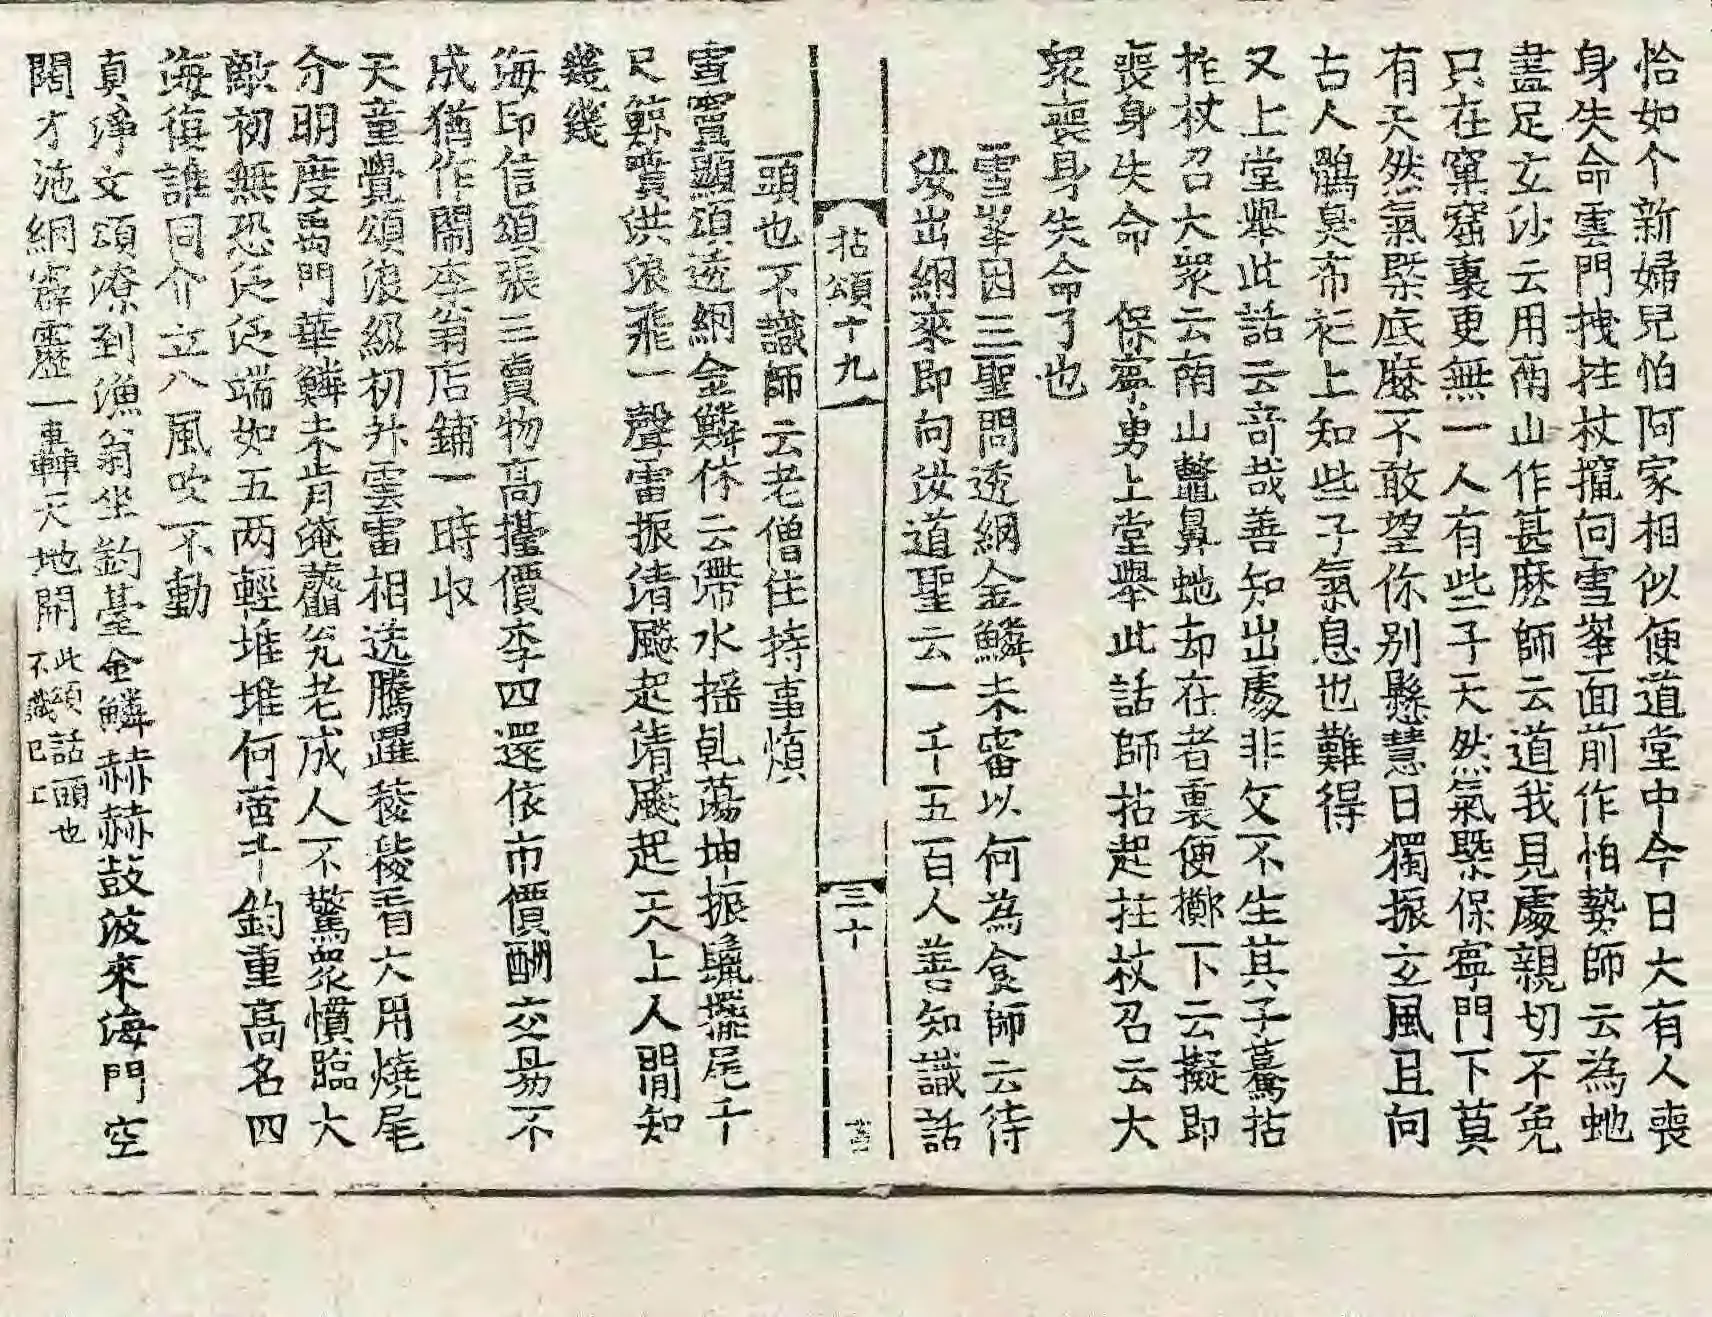 恰如个新婦兒怕阿家相似便道堂中今日大有人喪
身失命雲門拽拄杖攛向雪峯面前作怕勢師云為虵
盡足玄沙云用南山作甚麽師云道我見處親切不免
只在窠窟裏更無一人有些子天然氣槩保寧門下莫
有天然氣槩底麽不敢望你别懸慧日獨振玄風且向
古人鶻臭布衫上知些子氣息也難得
又上堂舉此話云竒哉善知出處非父不生其子驀拈
拄杖召大衆云南山鼈鼻虵却在者裏便擲下云擬即
喪身失命　保寧勇上堂舉此話師拈起拄杖召云大
衆喪身失命了也
雪峯因三聖問透網金鱗未審以何為食師云待
汝出網來即向汝道聖云一千五百人善知識話
拈頌十九
三十
頭也不識師云老僧住持事煩
雪竇顯頌透網金鱗休云滯水揺乹蕩坤振鬣擺尾千
尺鯨噴洪浪飛一聲雷振清飈起清飈起天上人間知
幾幾
海印信頌張三賣物高擡價李四還依市價酬交昜不
成猶作鬧李翁店鋪一時収
天童覺頌浪級初升雲雷相送騰躍稜稜看大用燒尾
分明度禹門華鱗未肯淹虀瓮老成人不驚衆慣臨大
敵初無恐泛泛端如五两輕堆堆何啻千鈞重髙名四
海復誰同介立八風吹不動
真淨文頌潦到漁翁坐釣臺金鱗赫赫鼓波來海門空
闊才施網霹靂一轟天地開此頌話頭也
不識已上